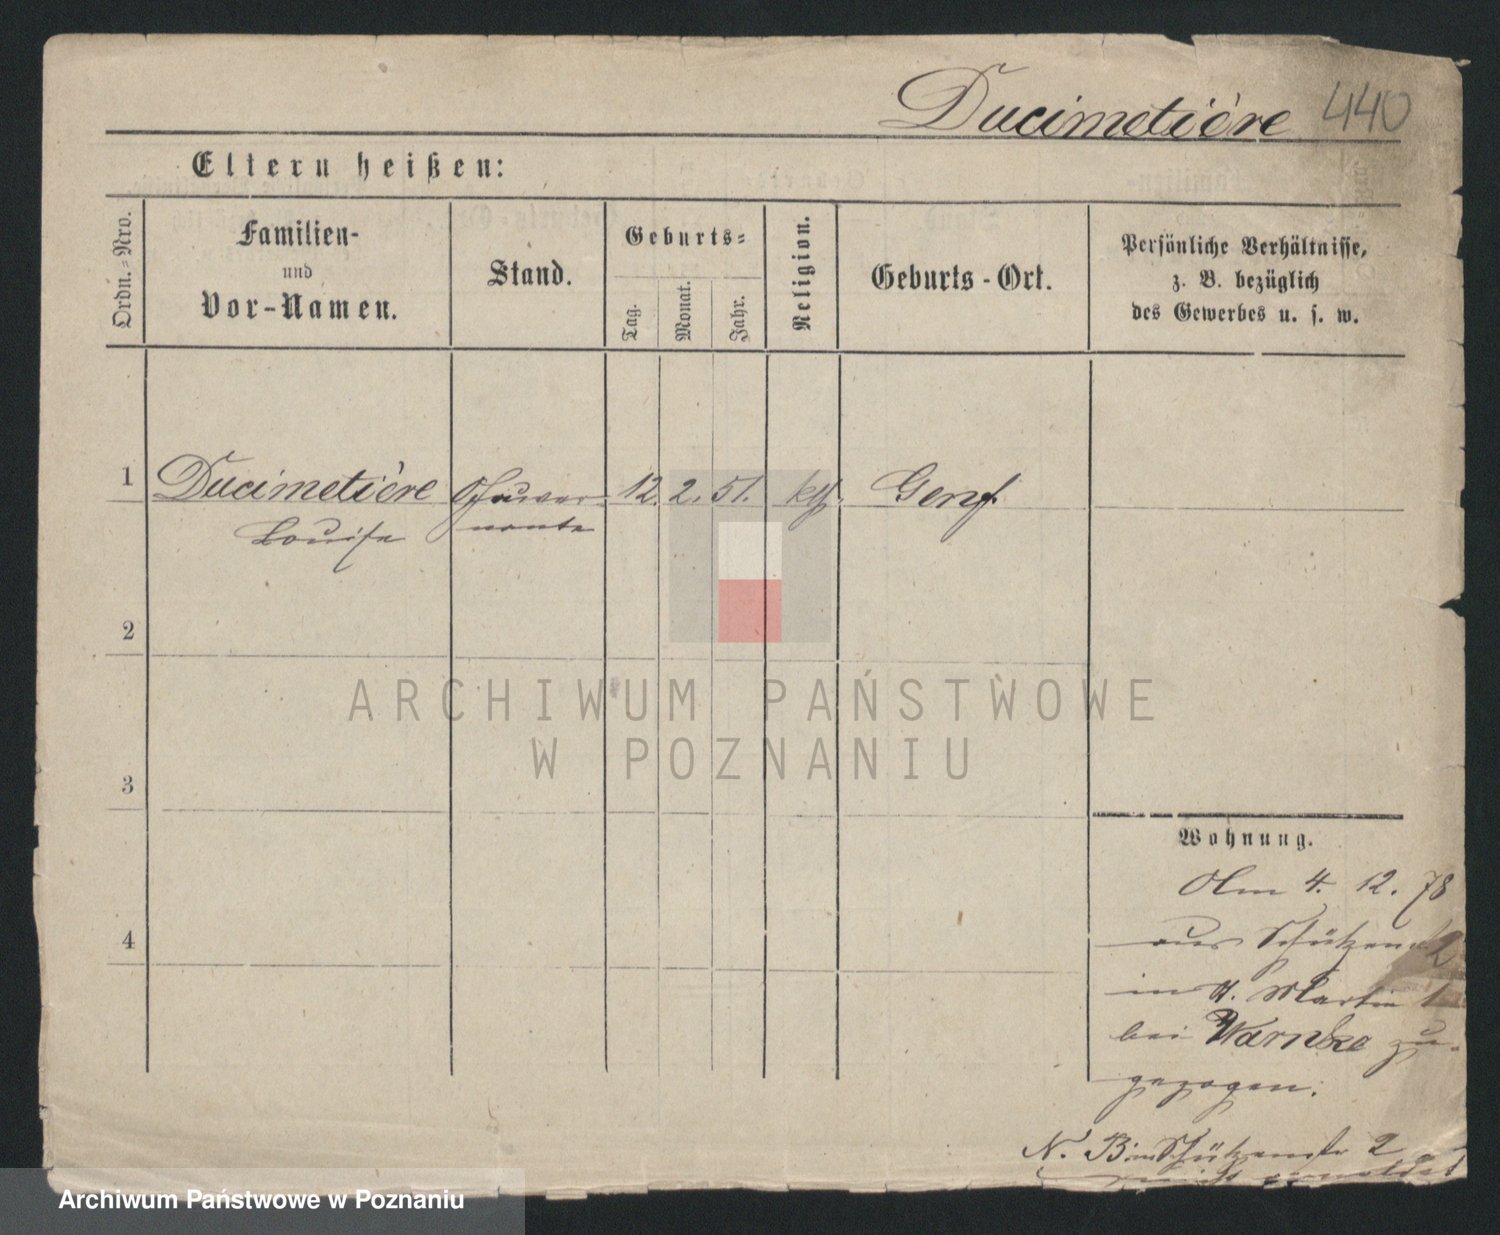 Ducimetière 440
Eltern heißen:
Ordn.=Nro.
Familien-
und
Vor-Namen.
Stand.
Geburts=
Tag.
Monat.
Jahr.
Religion.
Geburts-Ort.
Persönliche Verhältnisse,
z. B. bezüglich
des Gewerbes u. s. w.
1 Ducimetière Gouver- 12. 2. 51. kth. Genf
Louise nante
2
3
4
Wohnung.
Am 4. 12. 78
aus Schützenstr 2
in St. Martin 1
bei Warnke zu-
gezogen.
N. B. in Schützenstr 2
nicht gemeldet
ARCHIWUM PAŃSTWOWE
W POZNANIU
Archiwum Państwowe w Poznaniu